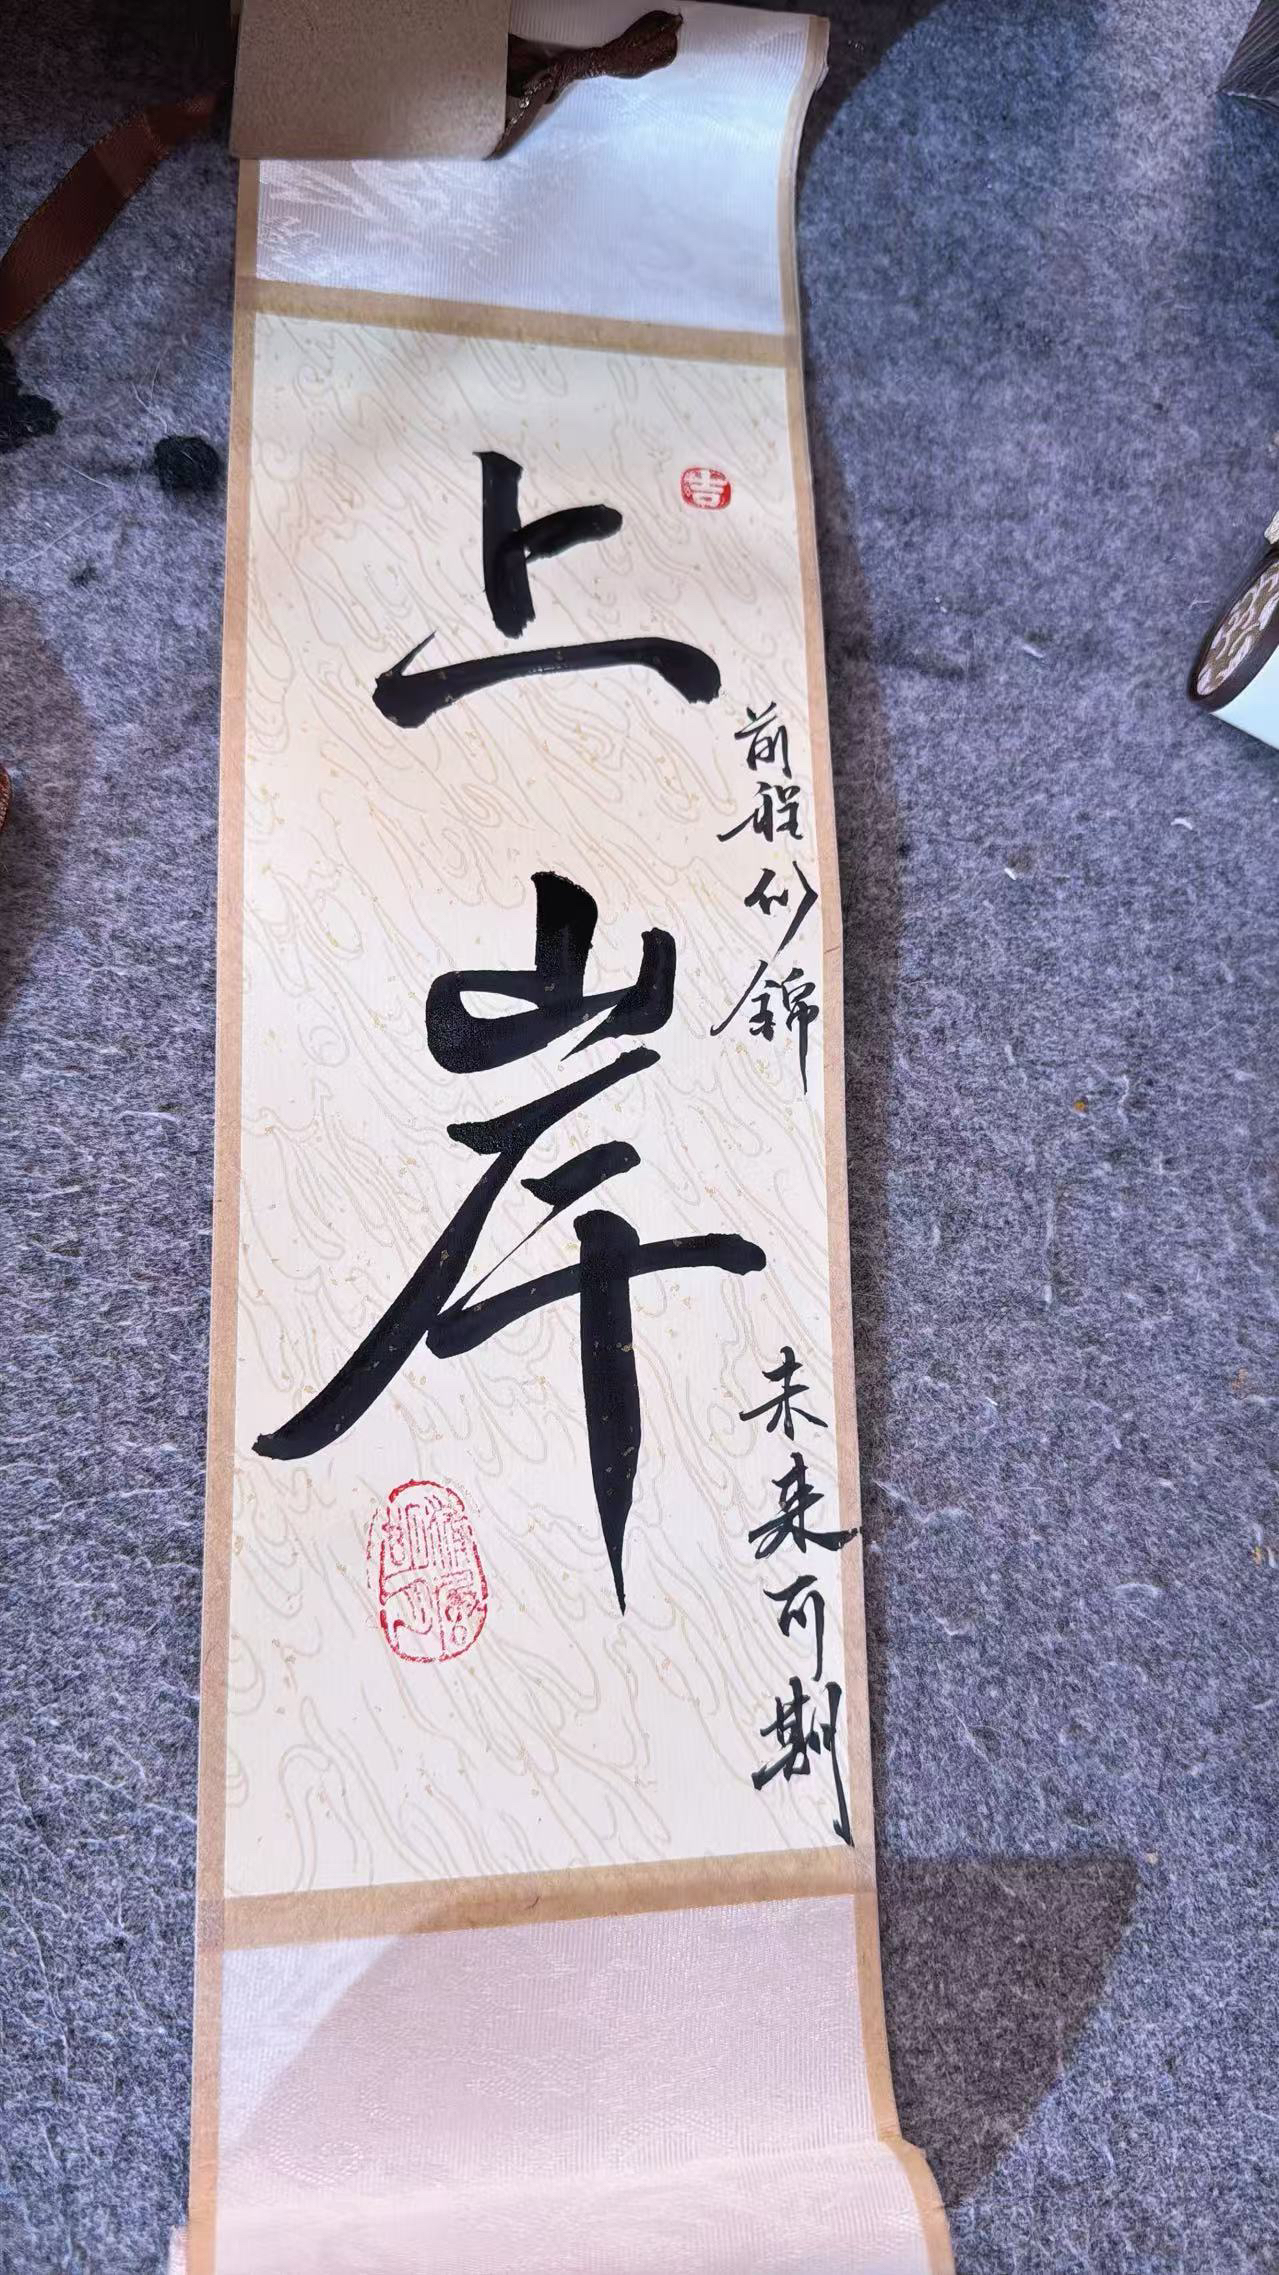 上岸
吉
前程似錦
未来可期